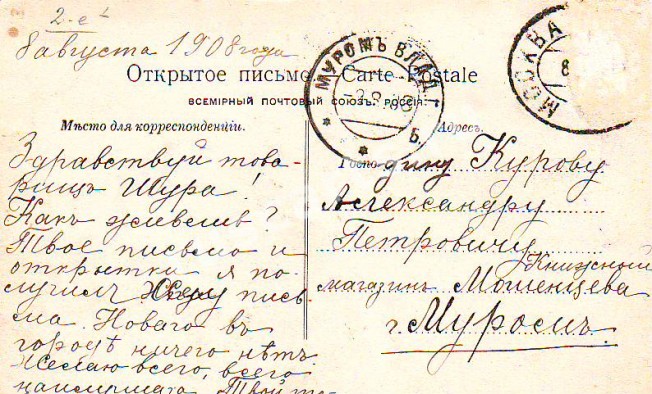 2-е
8 августа 1908 года
Открытое письмо — Carte Postale
ВСЕМІРНЫЙ ПОЧТОВЫЙ СОЮЗЪ. РОССІЯ.
МУРОМЪ ВЛАД.
Б.
МОСКВА
8
Мѣсто для корреспонденціи.
Здравствуй това-
рищъ Шура!
Какъ живешь?
Твое письмо и
открытки я по-
лучилъ Жду пись-
ма. Новаго въ
городѣ ничего нѣтъ.
Желаю всего, всего
наилучшаго. Твой то-
Адресъ.
Господину Курову
Александру
Петровичу
Книжный
магазинъ Мошенцева
г. Муромъ.